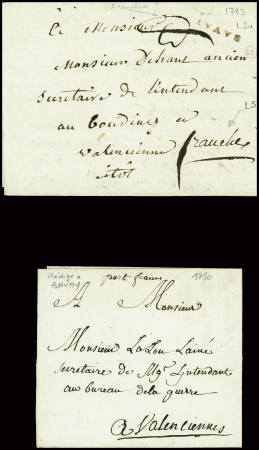 1793
L2a
BAVAY
A Monsieur
Monsieur Dehant ancien
Secretaire de l'intendant
au boudinez a
Valencienne
citot
franche
L5
Rédigé à
BAVAY
port franc
1790
A Monsieur
Monsieur LaLou Lainé
Secretaire de Mgr L'intendant
au bureau de la guerre
a Valenciennes